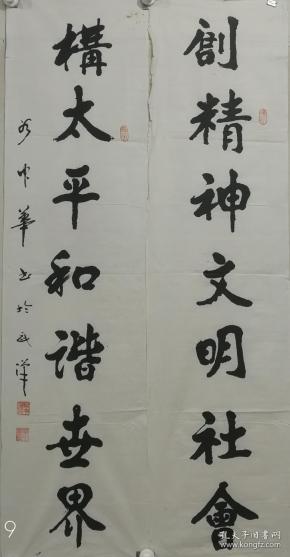 創精神文明社會
構太平和谐世界
華书於武漢
9
孔夫子旧书网
kongfz.com